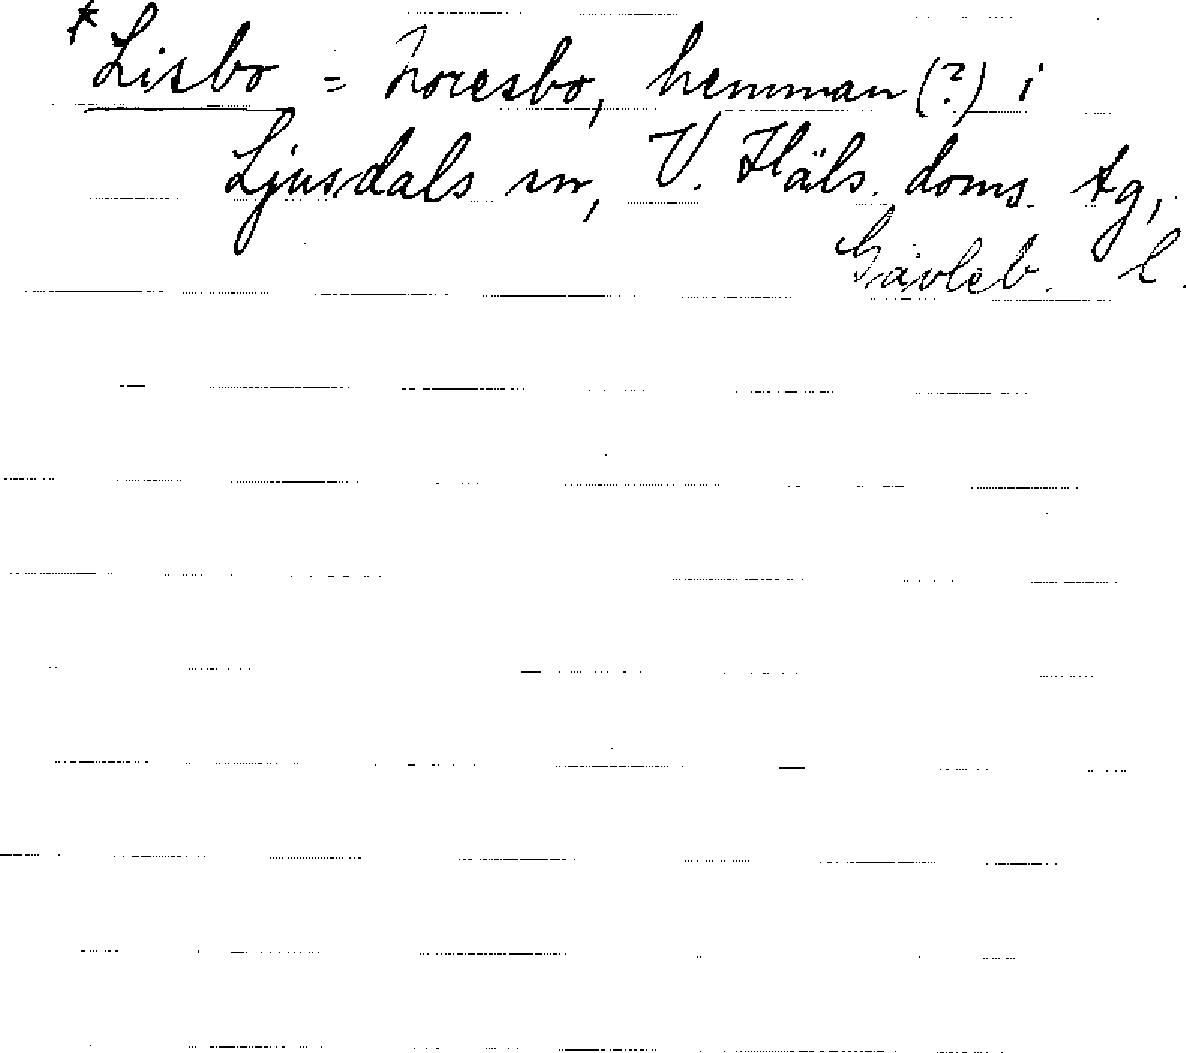 * Lisbo = Noresbo, hemman (?) i
Ljusdals sn, V. Häls. doms. tg,
Gävleb. l.